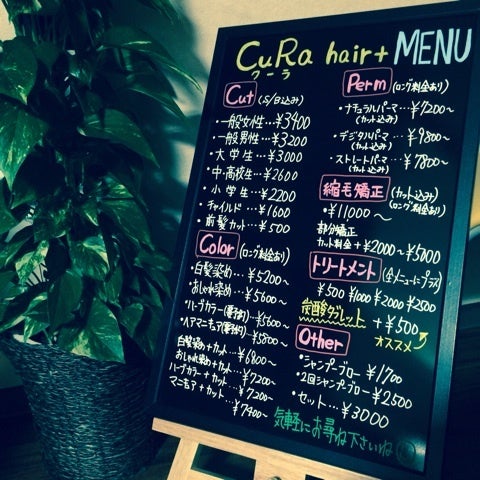 CuRa hair+ MENU
クーラ
Cut (S/B込み)
・一般女性…¥3400
・一般男性…¥3200
・大学生…¥3000
・中・高校生…¥2600
・小学生…¥2200
・チャイルド…¥1600
・前髪カット…¥500
Color (ロング料金あり)
・白髪染め…¥5200〜
・おしゃれ染め…¥5600〜
・ハーブカラー…¥5600〜
・ヘアマニキュア…¥5800〜
白髪染め+カット…¥6800〜
おしゃれ染め+カット…¥7200〜
ハーブカラー+カット…¥7200〜
マニキュア+カット…¥7400〜
Perm (ロング料金あり)
・ナチュラルパーマ…¥7200〜
(カット込み)
・デジタルパーマ…¥9800〜
(カット込み)
・ストレートパーマ…¥7800〜
(カット込み)
縮毛矯正 (カット込み)
(ロング料金あり)
・¥11000〜
部分矯正
カット料金+¥2000〜¥5000
トリートメント (全メニューにプラス)
¥500 ¥1000 ¥2000 ¥2500
炭酸タブレット +¥500
オススメ
Other
・シャンプーブロー ¥1700
・2回シャンプーブロー ¥2500
・セット…¥3000
気軽にお尋ね下さいね